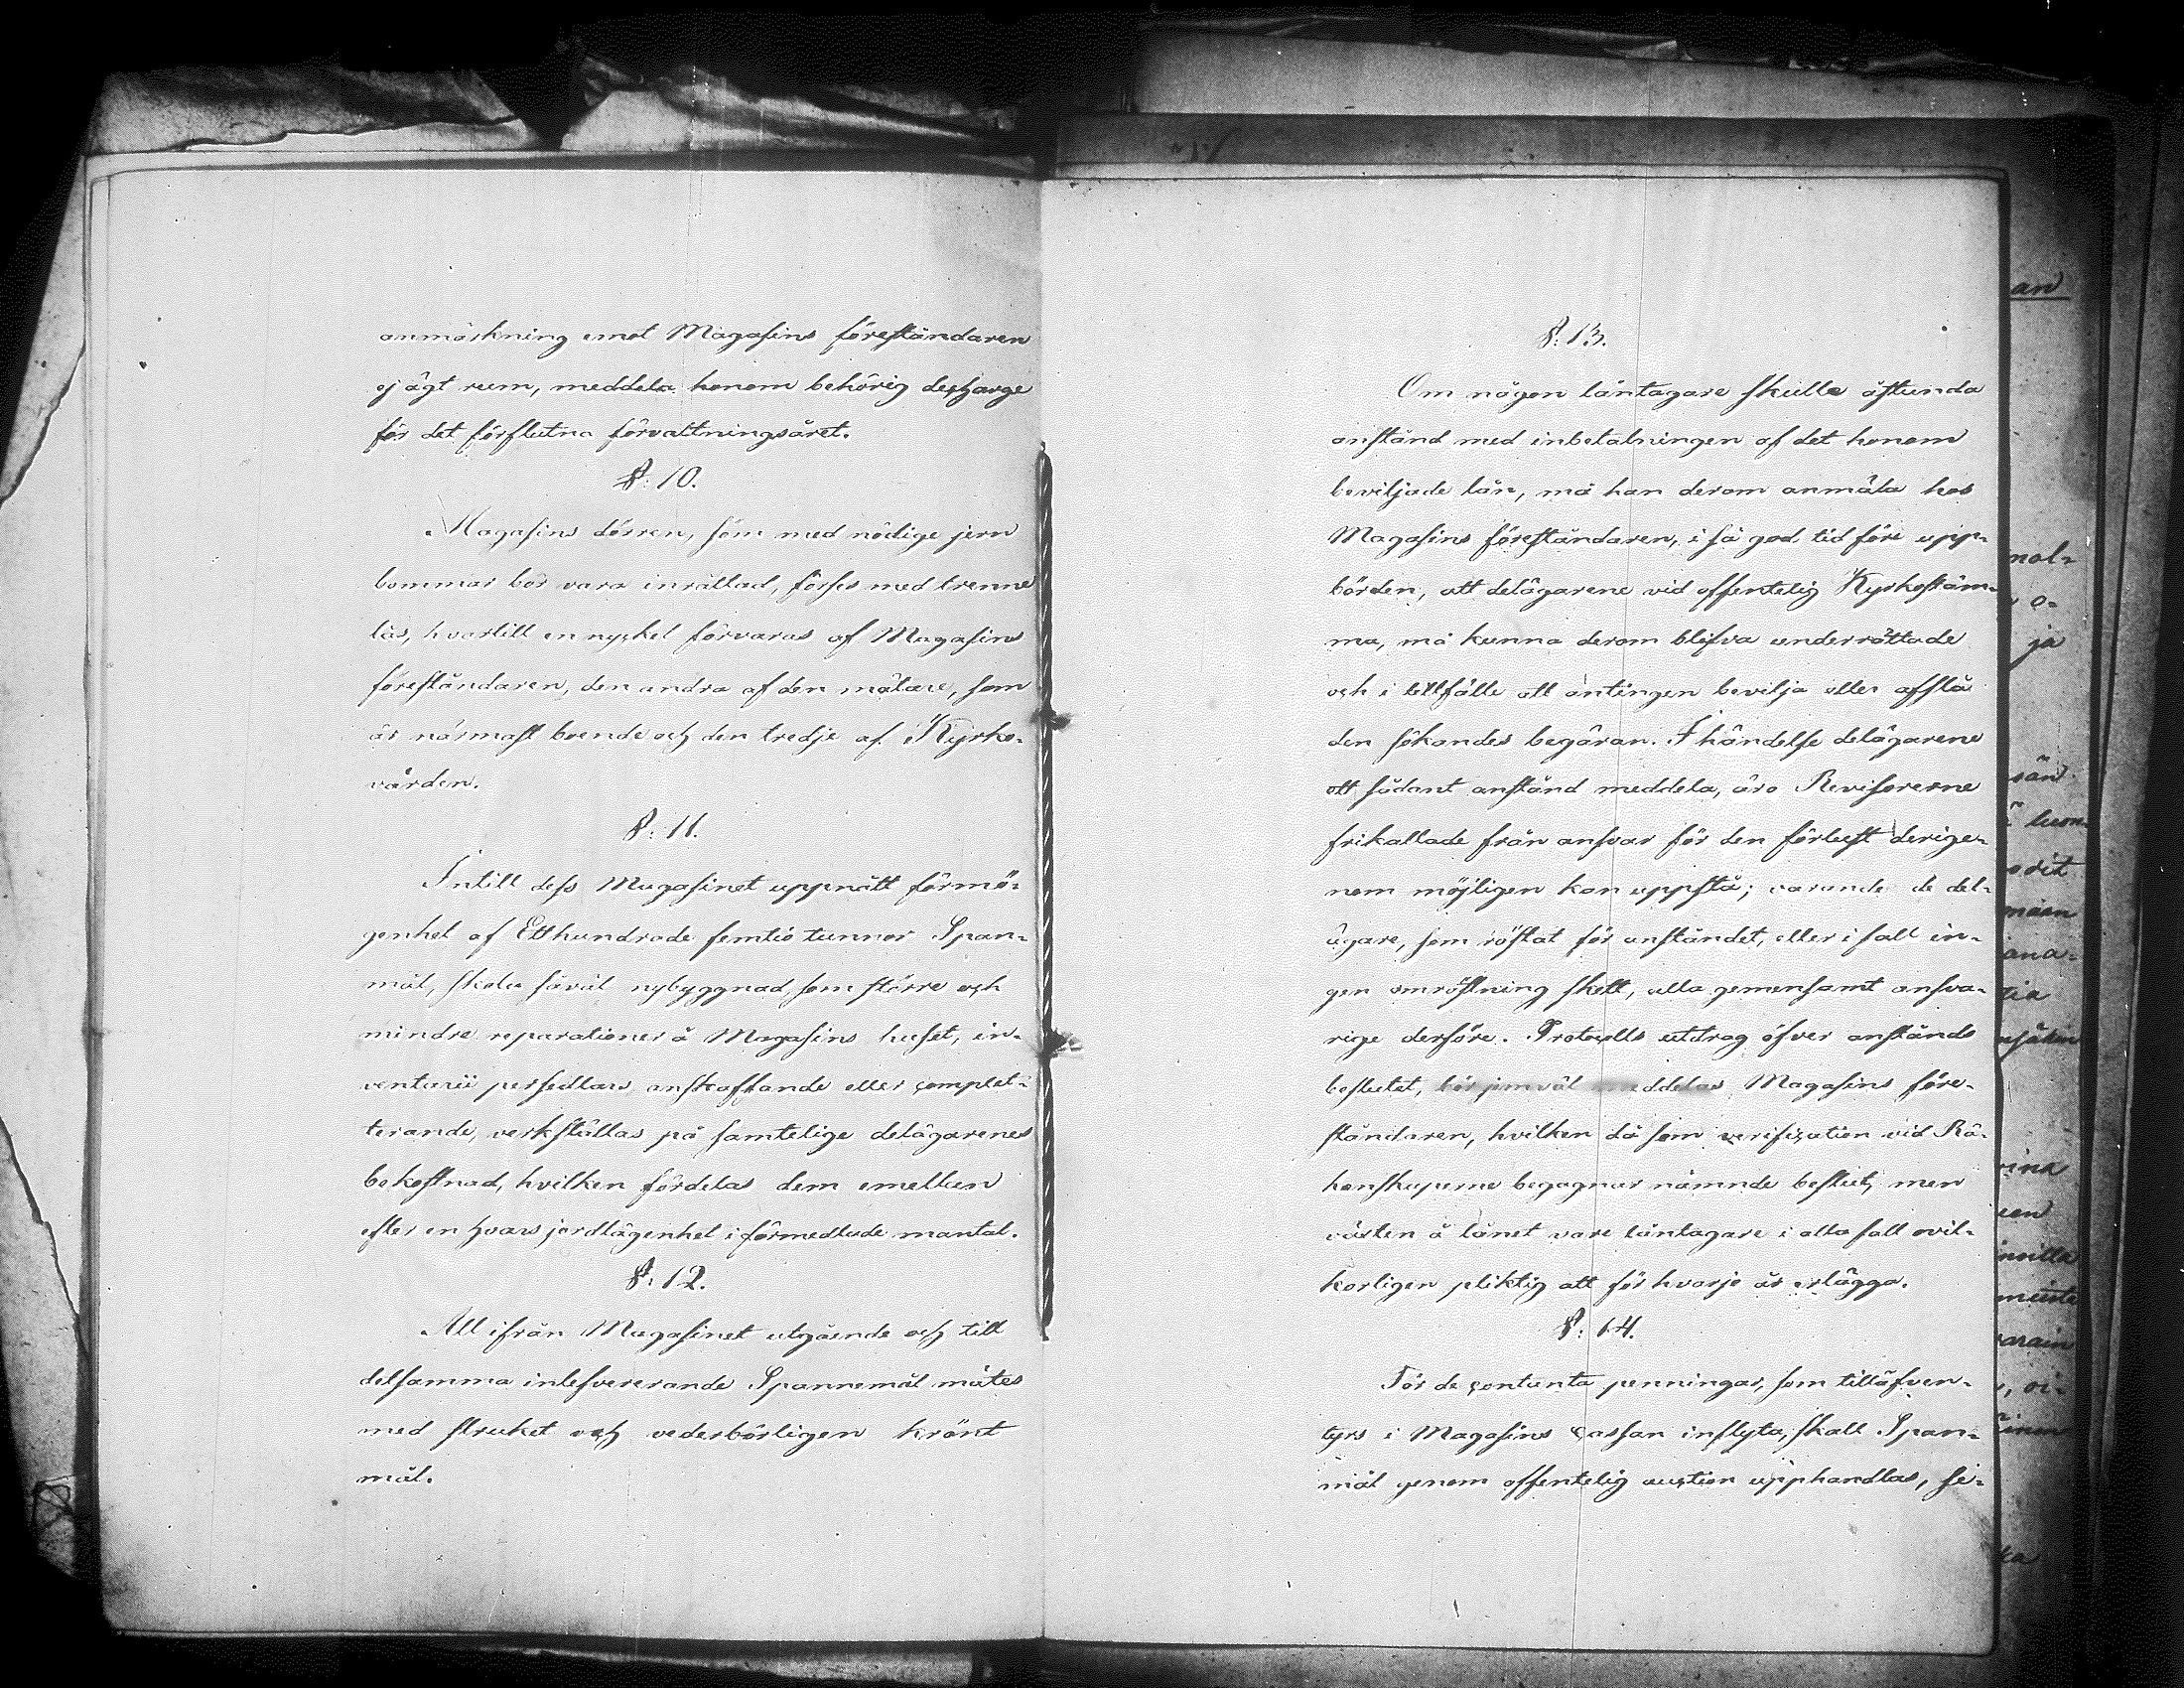 anmärkning emot Magasins föreståndaren
ej ägt rum, meddela honom behörig decharge
för det förflutna förvaltningsåret.
§: 10.
Magasins dörren, som med nödige jern
bommar bör vara inrättad, förses med trenne
lås, hvartill en nyckel förvaras af Magasins
föreståndaren, den andra af den mätare, som
är närmast boende och den tredje af Kyrko-
värden.
§: 11.
Intill dess Magasinet uppnått förmö-
genhet af Etthundrade femtio tunnor Span-
mål, skola såväl nybyggnad, som större och
mindre reparationer å Magasins huset, in-
ventarii persedlars anskaffande eller complet-
terande, verkställas på samtelige delägarenes
bekostnad, hvilken fördelas dem emellan
efter en hvars jordlägenhet i förmedlade mantal.
§: 12.
All ifrån Magasinet utgående och till
detsamma inlefvererande Spannemål mätes
med struket och vederbörligen krönt
mål.
§: 13.
Om någon låntagare skulle åstunda
anstånd med inbetalningen af det honom
beviljade lån, må han derom anmäla hos
Magasins föreståndaren, i så god tid före upp-
börden, att delägarene vid offentelig Kyrkostäm-
ma, må kunna derom blifva underrättade
och i tillfälle att antingen bevilja eller afslå
den sökandes begäran. I händelse delägarene
ett sådant anstånd meddela, äro Revisorerne
frikallade från ansvar för den förlust derige-
nom möjligen kan uppstå; varande de del-
ägare, som röstat för anståndet, eller i fall in-
gen omröstning skett, alla gemensamt ansva-
rige derföre. Protocolls utdrag öfver anstånds
beslutet, bör jemväl meddelas Magasins före-
ståndaren, hvilken då som verification vid Rä-
kenskaperne begagnar nämnde beslut, men
växten å lånet vare låntagare i alla fall ovil-
korligen pliktig att för hvarje år erlägga.
§: 14.
För de contanta penningar, som tilläfven-
tyrs i Magasins cassan inflyta, skall Span-
mål genom offentelig auction upphandlas, se-
an
mal-
o-
ja
sän
luon
orit
maan
ana-
tia